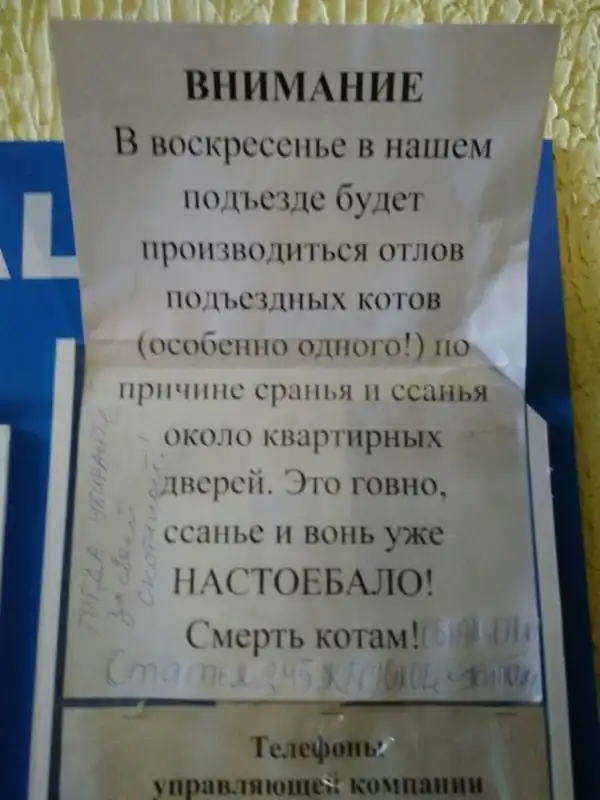 ВНИМАНИЕ
В воскресенье в нашем
подъезде будет
производиться отлов
подъездных котов
(особенно одного!) по
причине сранья и ссанья
около квартирных
дверей. Это говно,
ссанье и вонь уже
НАСТОЕБАЛО!
Смерть котам!
Статья 245
ТОГДА УБИРАЙТЕ
за своей
скотиной!
Телефоны
управляющей компании